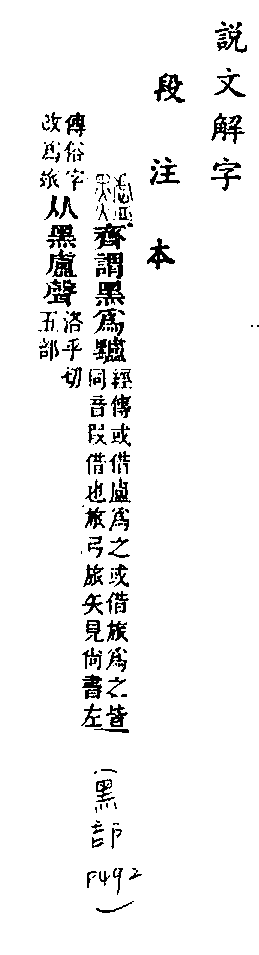 說文解字
段注本
齊謂黑爲黸
經傳或借盧爲之或借旅爲之皆
同音叚借也旅弓旅矢見尙書左
傳俗字
改爲玈
从黑盧聲
洛乎切
五部
(黑部
P492)